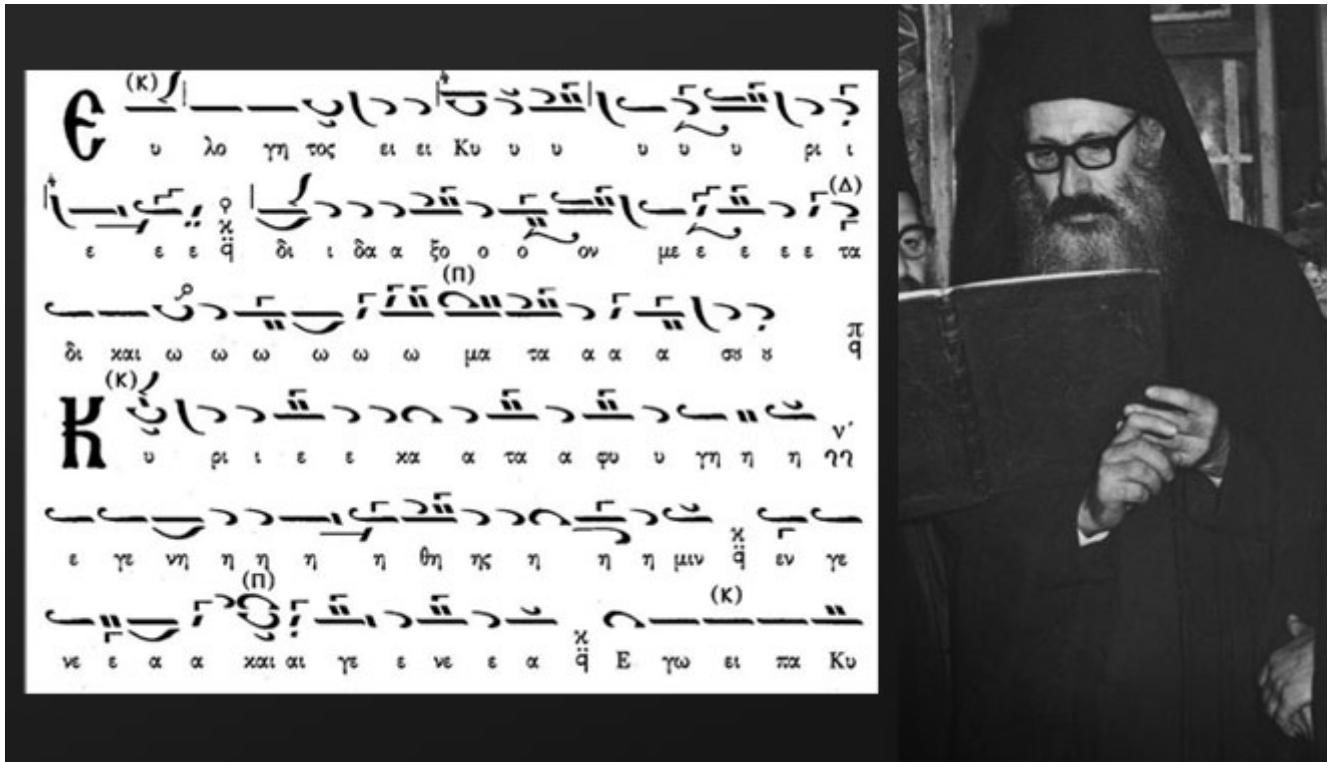 (Κ)
Ευ λο γη τος ει ει Κυ υ υ υ υ υ ρι ι
(Δ)
ε ε ε δι ι δα α ξο ο ο ον με ε ε ε τα
(Π)
δι και ω ω ω ω ω ω μα τα α α α σȣ ȣ π
(Κ)
Κυ ρι ι ε ε κα α τα α φυ υ γη η η ηη ν΄
ε γε νη η η η η θη ης η η η μιν εν γε
(Π) (Κ)
νε ε α α και αι γε ε νε ε α Ε γω ει πα Κυ